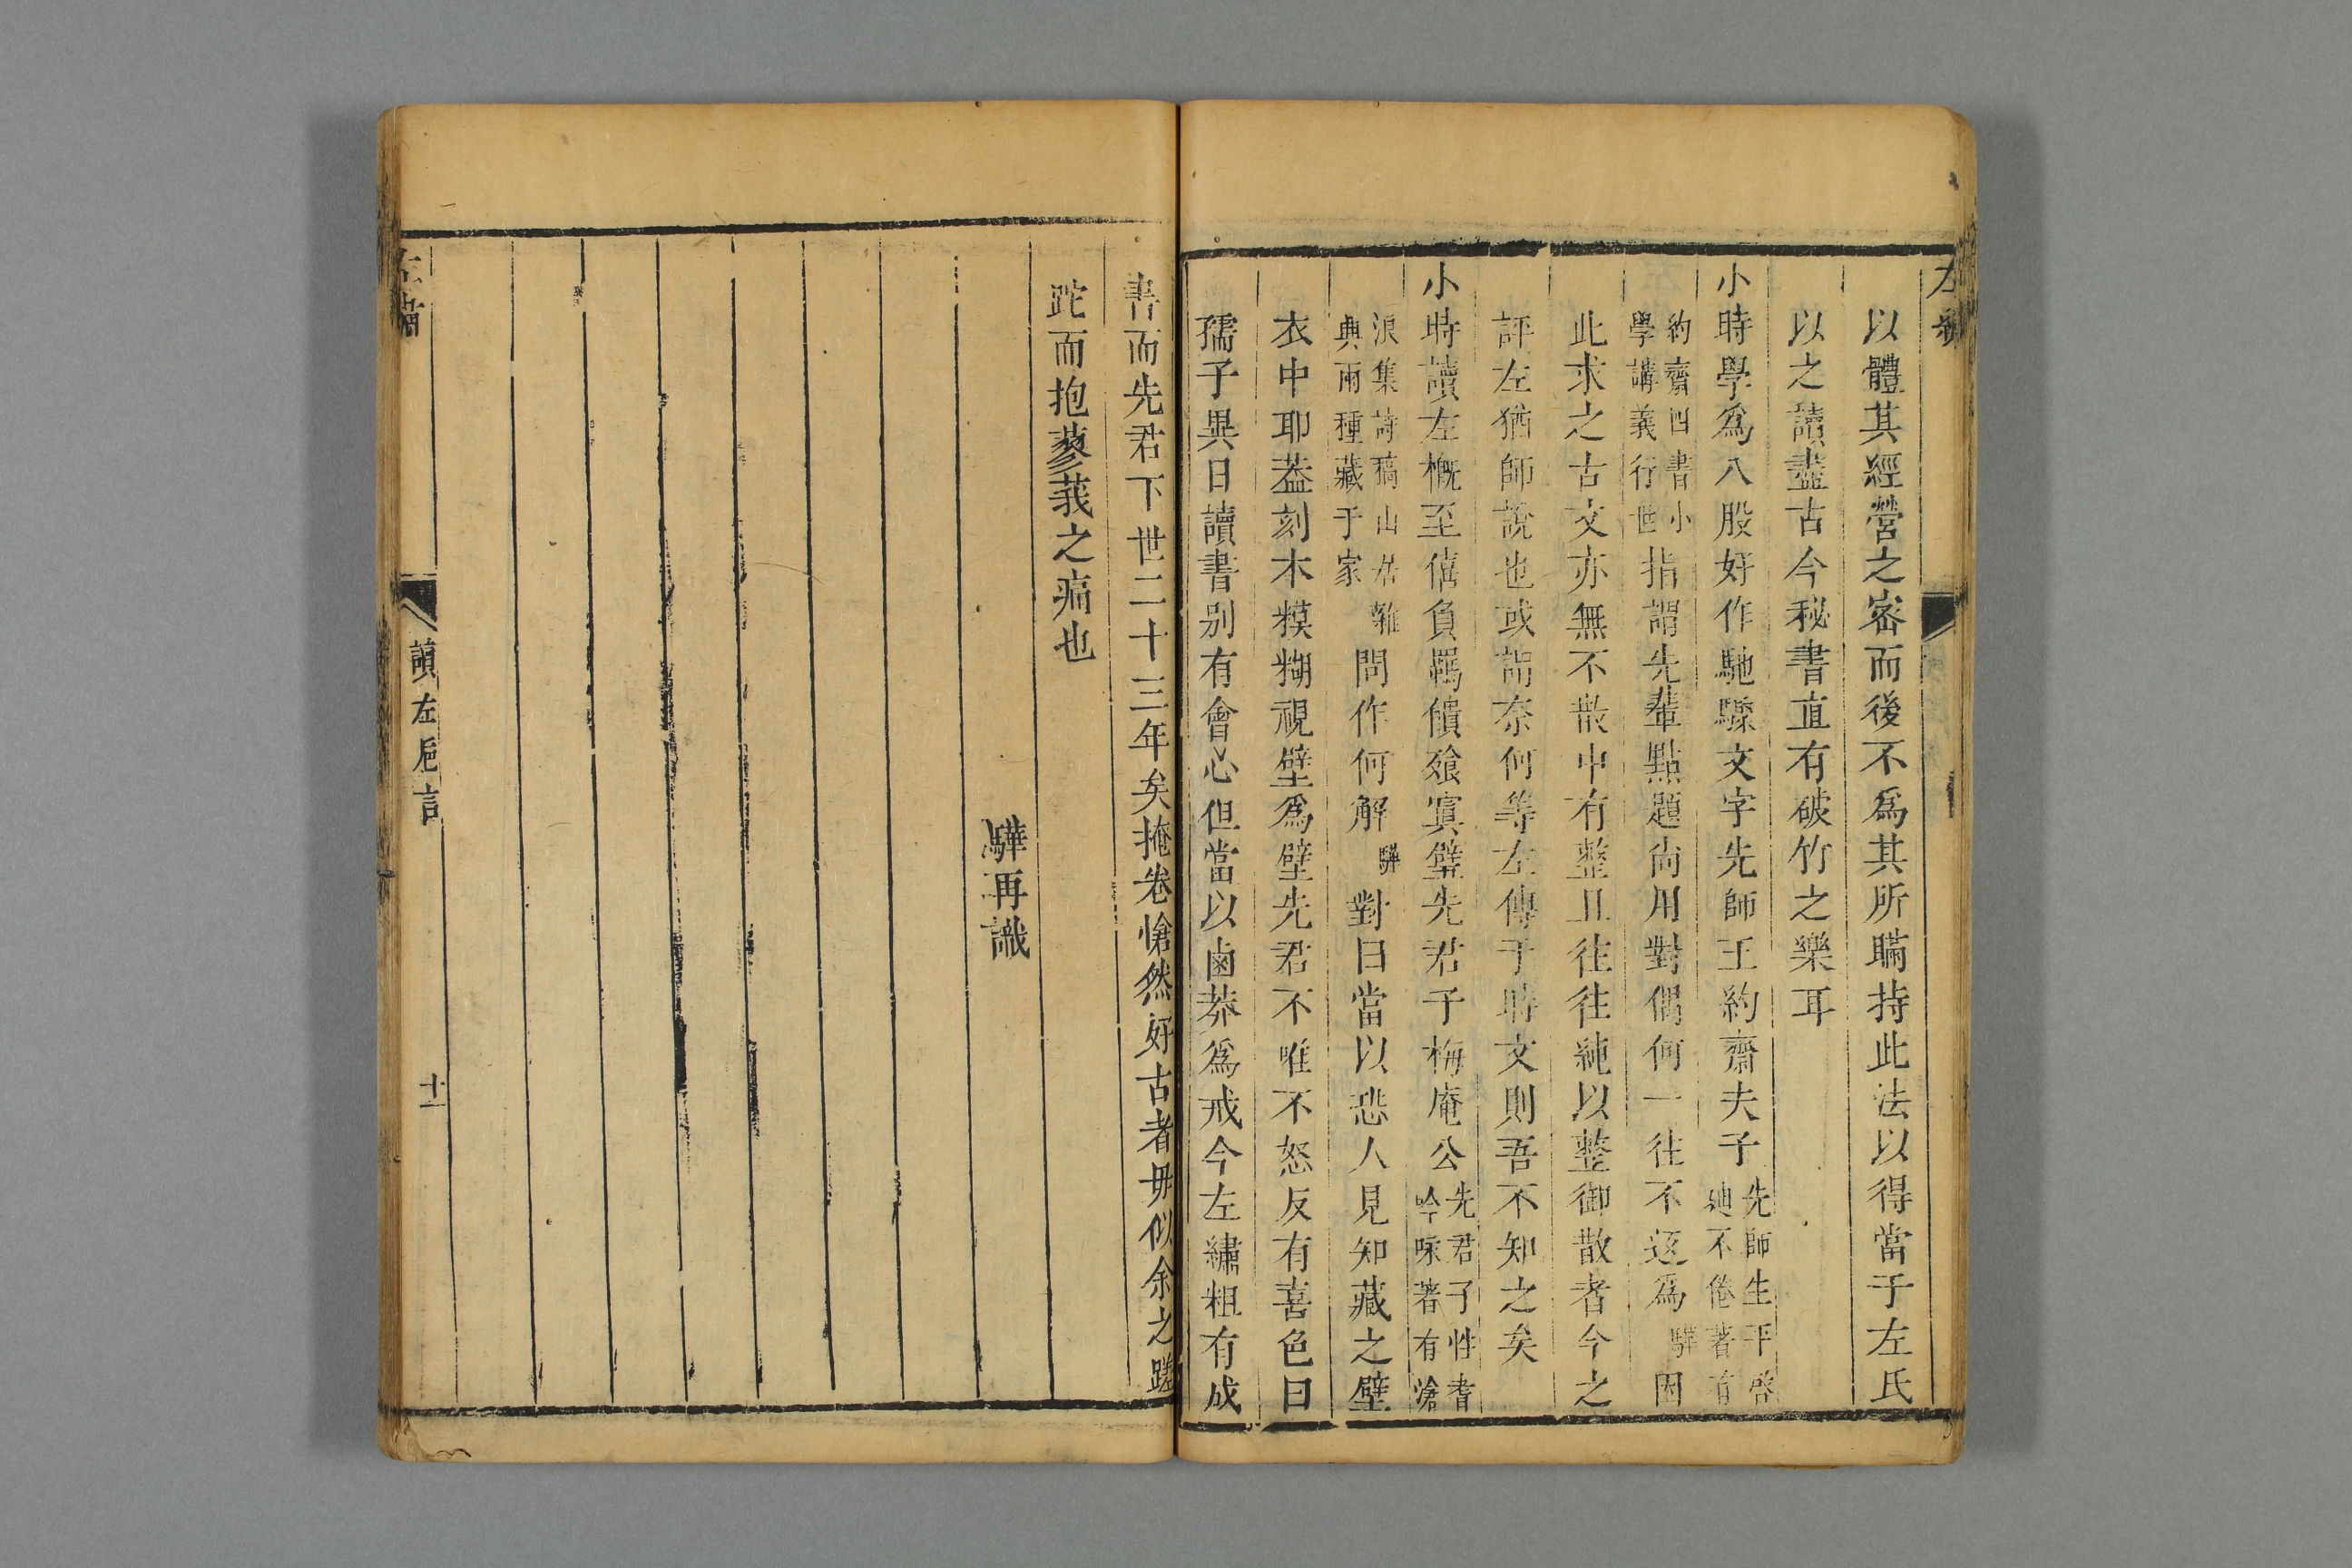 左繡
以體其經營之密而後不爲其所瞞持此法以得當于左氏
以之讀盡古今秘書直有破竹之樂耳
小時學爲八股好作馳驟文字先師王約齋夫子先師生平啓迪不倦著有
約齋四書小學講義行世指謂先輩點題尚用對偶何一往不返爲驊因
此求之古文亦無不散中有整且往往純以整御散者今之
評左猶師說也或謂奈何等左傳于時文則吾不知之矣
小時讀左槪至僖負羈饋飱寘璧先君子梅庵公先君子性耆吟咏著有滄
浪集詩稿山居雜典兩種藏于家問作何解驊對曰當以恐人見知藏之壁
衣中耶葢刻木糢糊視璧爲壁先君不唯不怒反有喜色曰
孺子異日讀書别有會心但當以鹵莽爲戒今左繡粗有成
書而先君下世二十三年矣掩卷愴然好古者毋似余之蹉
跎而抱蓼莪之痛也
驊再識
左繡
讀左巵言
十一